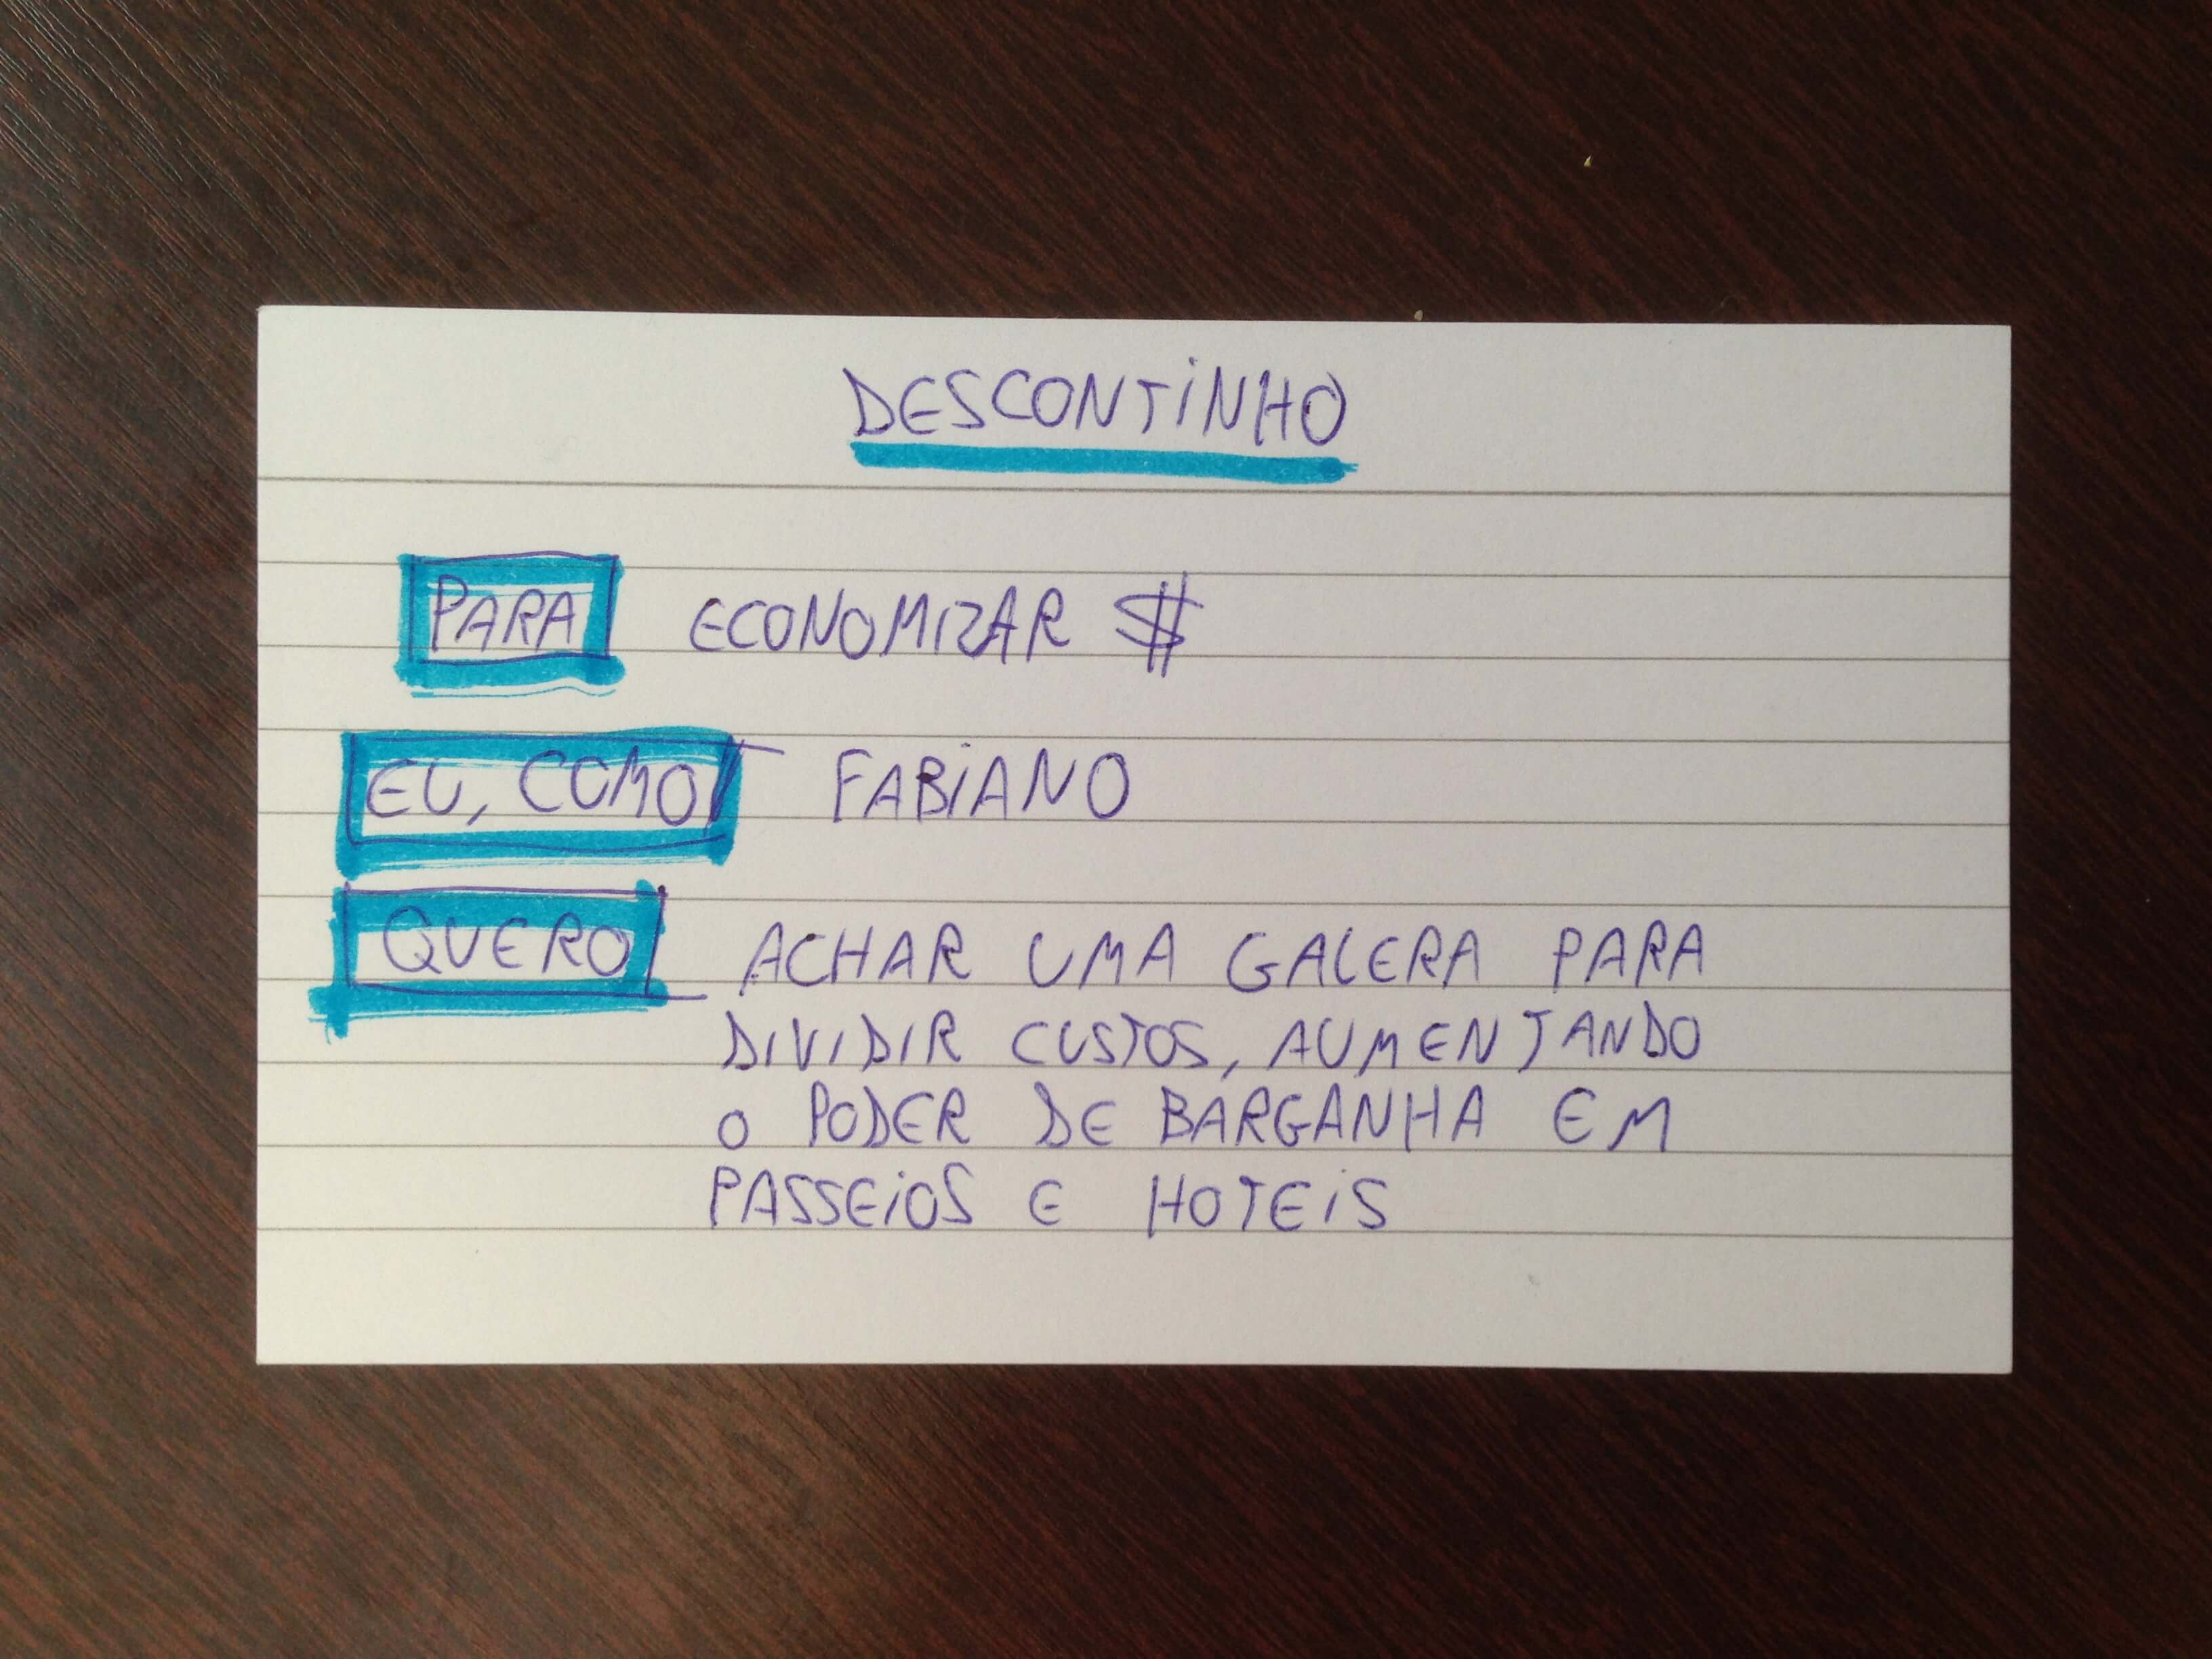 DESCONTINHO
PARA ECONOMIZAR $
EU, COMO FABIANO
QUERO ACHAR UMA GALERA PARA
DIVIDIR CUSTOS, AUMENTANDO
O PODER DE BARGANHA EM
PASSEIOS E HOTEIS